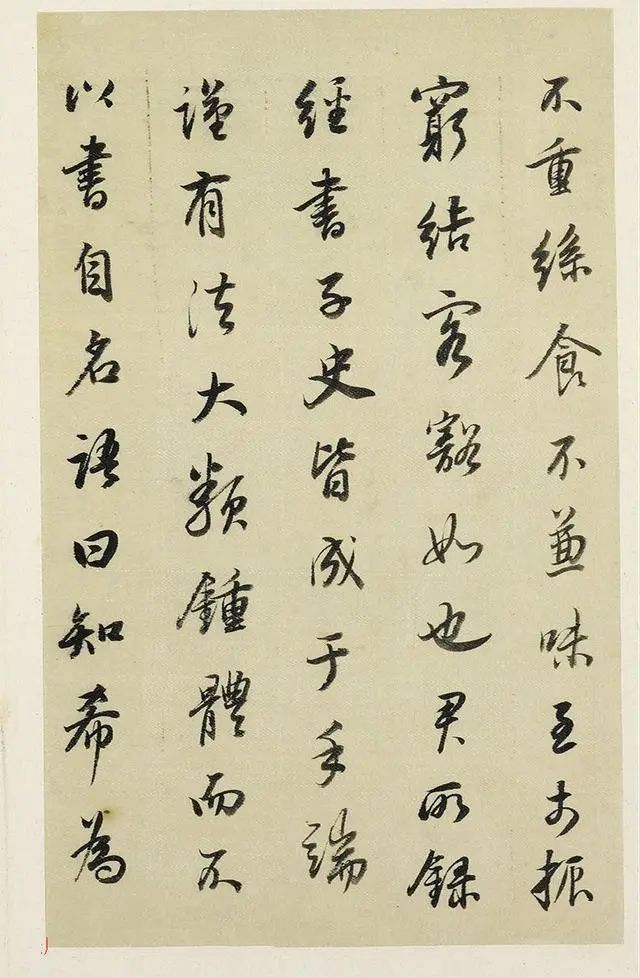 不重綵食不兼味至於振
窮結客豁如也君所録
經書子史皆成于手端
謹有法大類鍾體而不
以書自名語曰知希為